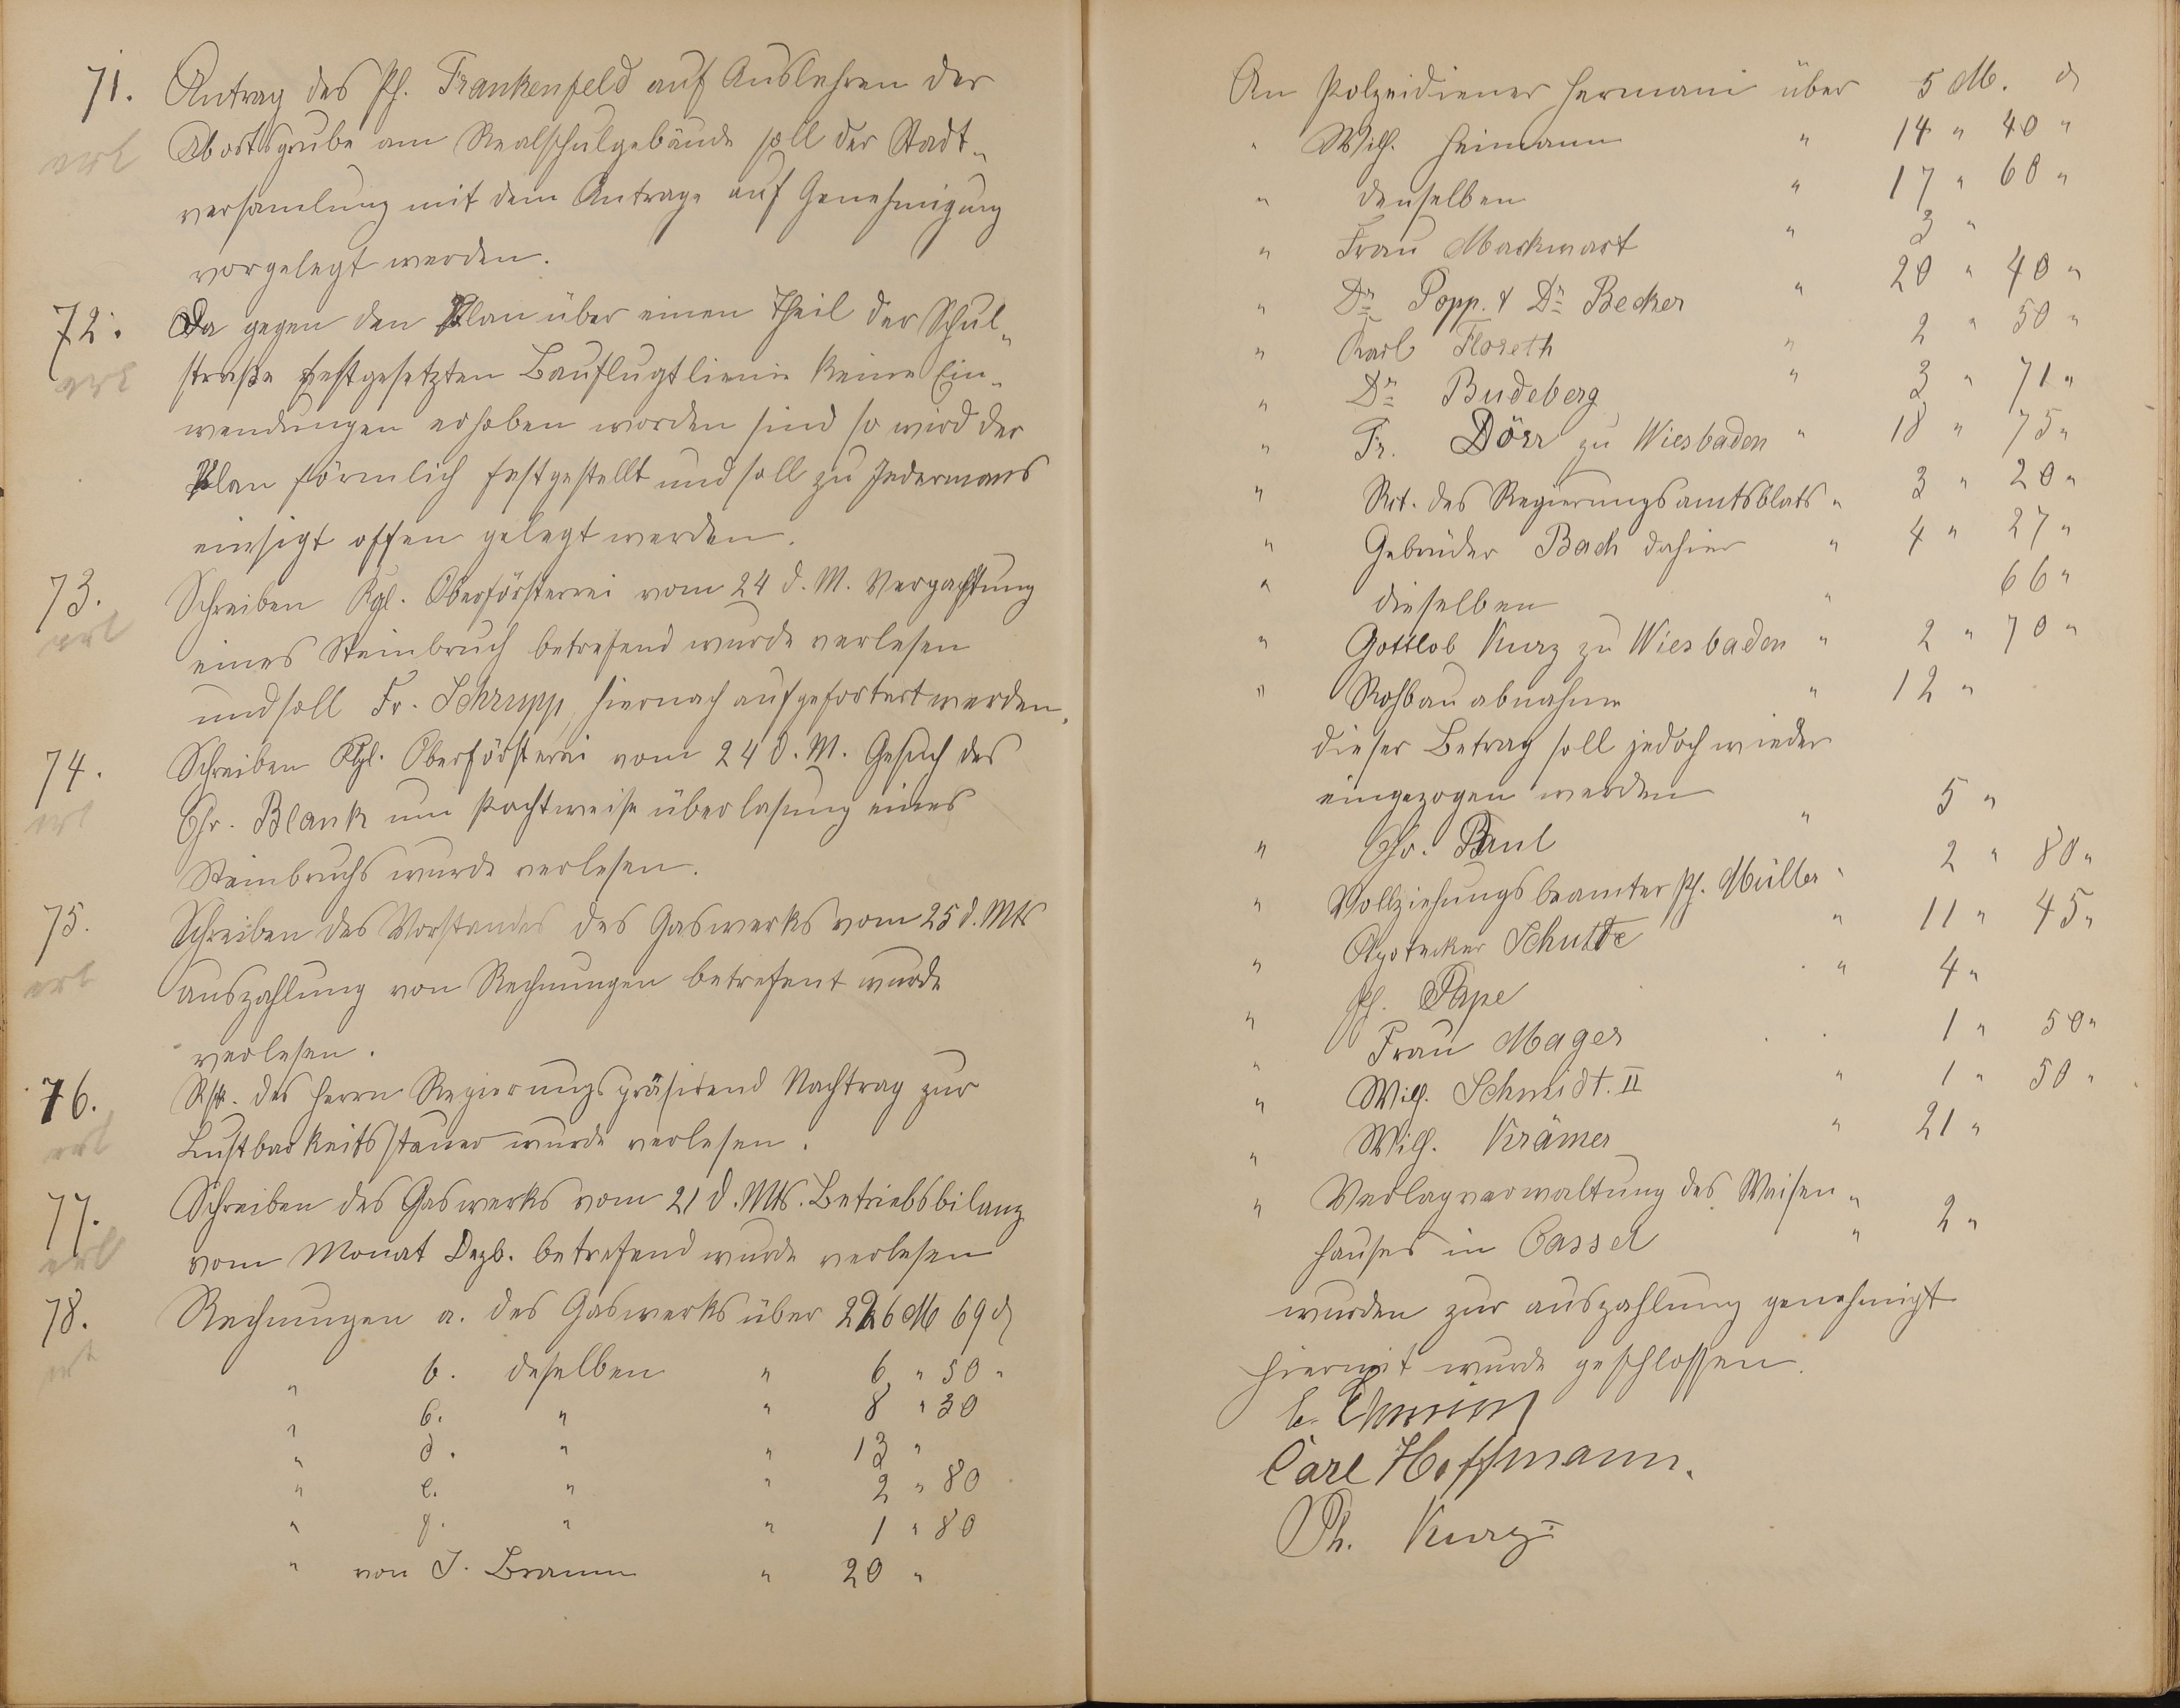 71. Antrag des Ph. Frankenfeld auf Auslehren der
erl Abortsgrube am Realschulgebäude soll der Stadt-
versamlung mit dem Antrage auf Genehmigung
vorgelegt werden.
72. Da gegen den Plan über einen Theil der Schul-
erl straße festgesetzten Bauflugtlienie keine Ein-
wendungen erhoben worden sind so wird der
Plan förmlich festgestellt und soll zu Jedermans
einsigt offen gelegt werden.
73. Schreiben Kgl. Oberförsterei vom 24 d. M. Verpachtung
erl eines Steinbruch betrefend wurde verlesen
und soll Fr. Schrupp hiernach aufgefortert werden.
74. Schreiben Kgl. Oberförsterei vom 24 d. M. Gesuch des
erl Chr. Blank um Pachtweise überlasung eines
Steinbruchs wurde verlesen.
75. Schreiben des Vorstandes des Gaswerks vom 25 d. Mts
erl auszahlung von Rechnungen betrefent wurde
verlesen.
76. Rsk. des Herrn Regierungspräsidend Nachtrag zur
erl Lustbarkeitssteuer wurde verlesen.
77. Schreiben des Gaswerks vom 21 d. Mts. Betriebsbilanz
erl vom Monat Dezb. betrefend wurde verlesen
78. Rechnungen a. des Gaswerks über 226 M 69 d
erl " b. deselben " 6 " 50 "
" c. " " 8 " 30
" d. " " 13 "
" e. " " 2 " 80
" f. " " 1 " 80
" von J. Braun " 20 "
An Polzeidiener Hermani über 5 M. d
" Wilh. Heimann " 14 " 40 "
" denselben " 17 " 60 "
" Frau Markwart " 3 "
" Dr Popp. & Dr Becker " 20 " 40 "
" Karl Floreth " 2 " 50 "
" Dr Budeberg " 3 " 71 "
" Fr. Dörr zu Wiesbaden " 18 " 75 "
" Rct. des Regierungsamtsblats " 3 " 20 "
" Gebrüder Bach dahier " 4 " 27 "
" dieselben " 66 "
" Gottlob Kurz zu Wiesbaden " 2 " 70 "
" Rohbauabnahme " 12 "
dieser Betrag soll jedoch wieder
eingezogen werden
" Chr. Paul " 5 "
" Vollziehungsbeamter Ph. Müller " 2 " 80 "
" Apotecker Schutte " 11 " 45 "
" Ph. Pape " 4 "
" Frau Mager 1 " 50 "
" Wilh. Schmidt. II " 1 " 50 "
" Wilh. Krämer " 21 "
" Verlagverwaltung des Waisen "
hauses in Cassel " 2 "
wurden zur auszahlung genehmigt
Hiermit wurde geschlossen.
Carl Hoffmann.
Ph. Kurz